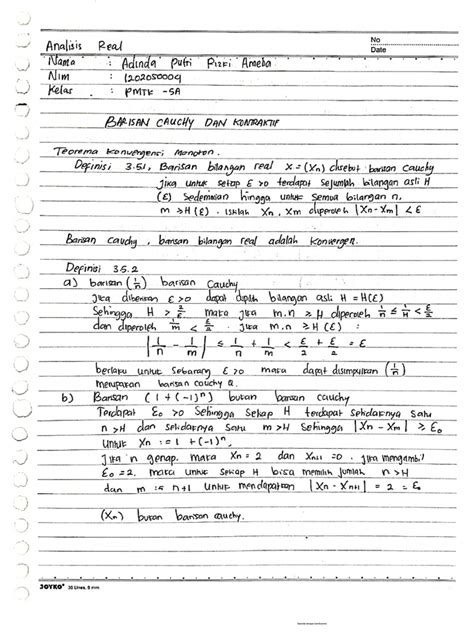 No
Date
Analisis Real
Nama : Adinda Putri Rizki Amelia
Nim : 1202050004
Kelas : PMTK -5A
BARISAN CAUCHY DAN KONTRAKTIF
Teorema Konvergensi Monoton.
Definisi 3.5.1, Barisan bilangan real X = (Xn) disebut barisan cauchy
jika untuk setiap ε >0 terdapat sejumlah bilangan asli H
(ε) Sedemikian hingga untuk Semua bilangan n,
m ≥ H(ε). Xn, Xm diperoleh |Xn - Xm| < ε
Barisan cauchy, barisan bilangan real adalah Konvergen.
Definisi 3.5.2
a) barisan (1/n) barisan Cauchy
Jika diberikan ε >0 dapat dipilih bilangan asli H = H(ε)
Sehingga H > 2/ε. maka jika m,n ≥ H diperoleh 1/n ≤ 1/H < ε/2
dan diperoleh 1/m < ε/2. Jika m,n ≥ H (ε) :
|1/n - 1/m| ≤ 1/n + 1/m < ε/2 + ε/2 = ε
berlaku untuk Sebarang ε >0 maka dapat disimpulkan (1/n)
merupakan barisan cauchy
b) Barisan (1 + (-1)^n) bukan barisan cauchy
Terdapat ε0 >0 Sehingga setiap H terdapat setidaknya satu
n >H dan setidaknya Satu m >H Sehingga |Xn - Xm| ≥ ε0
Untuk Xn := 1 + (-1)^n.
Jika n genap. maka Xn = 2 dan Xn+1 =0. Jika mengambil
ε0 =2. maka untuk setiap H bisa memilih jumlah n>H
dan m := n+1 Untuk mendapatkan |Xn - Xn+1| = 2 = ε0
(Xn) bukan barisan cauchy.
JOYKO 30 Lines, 8 mm